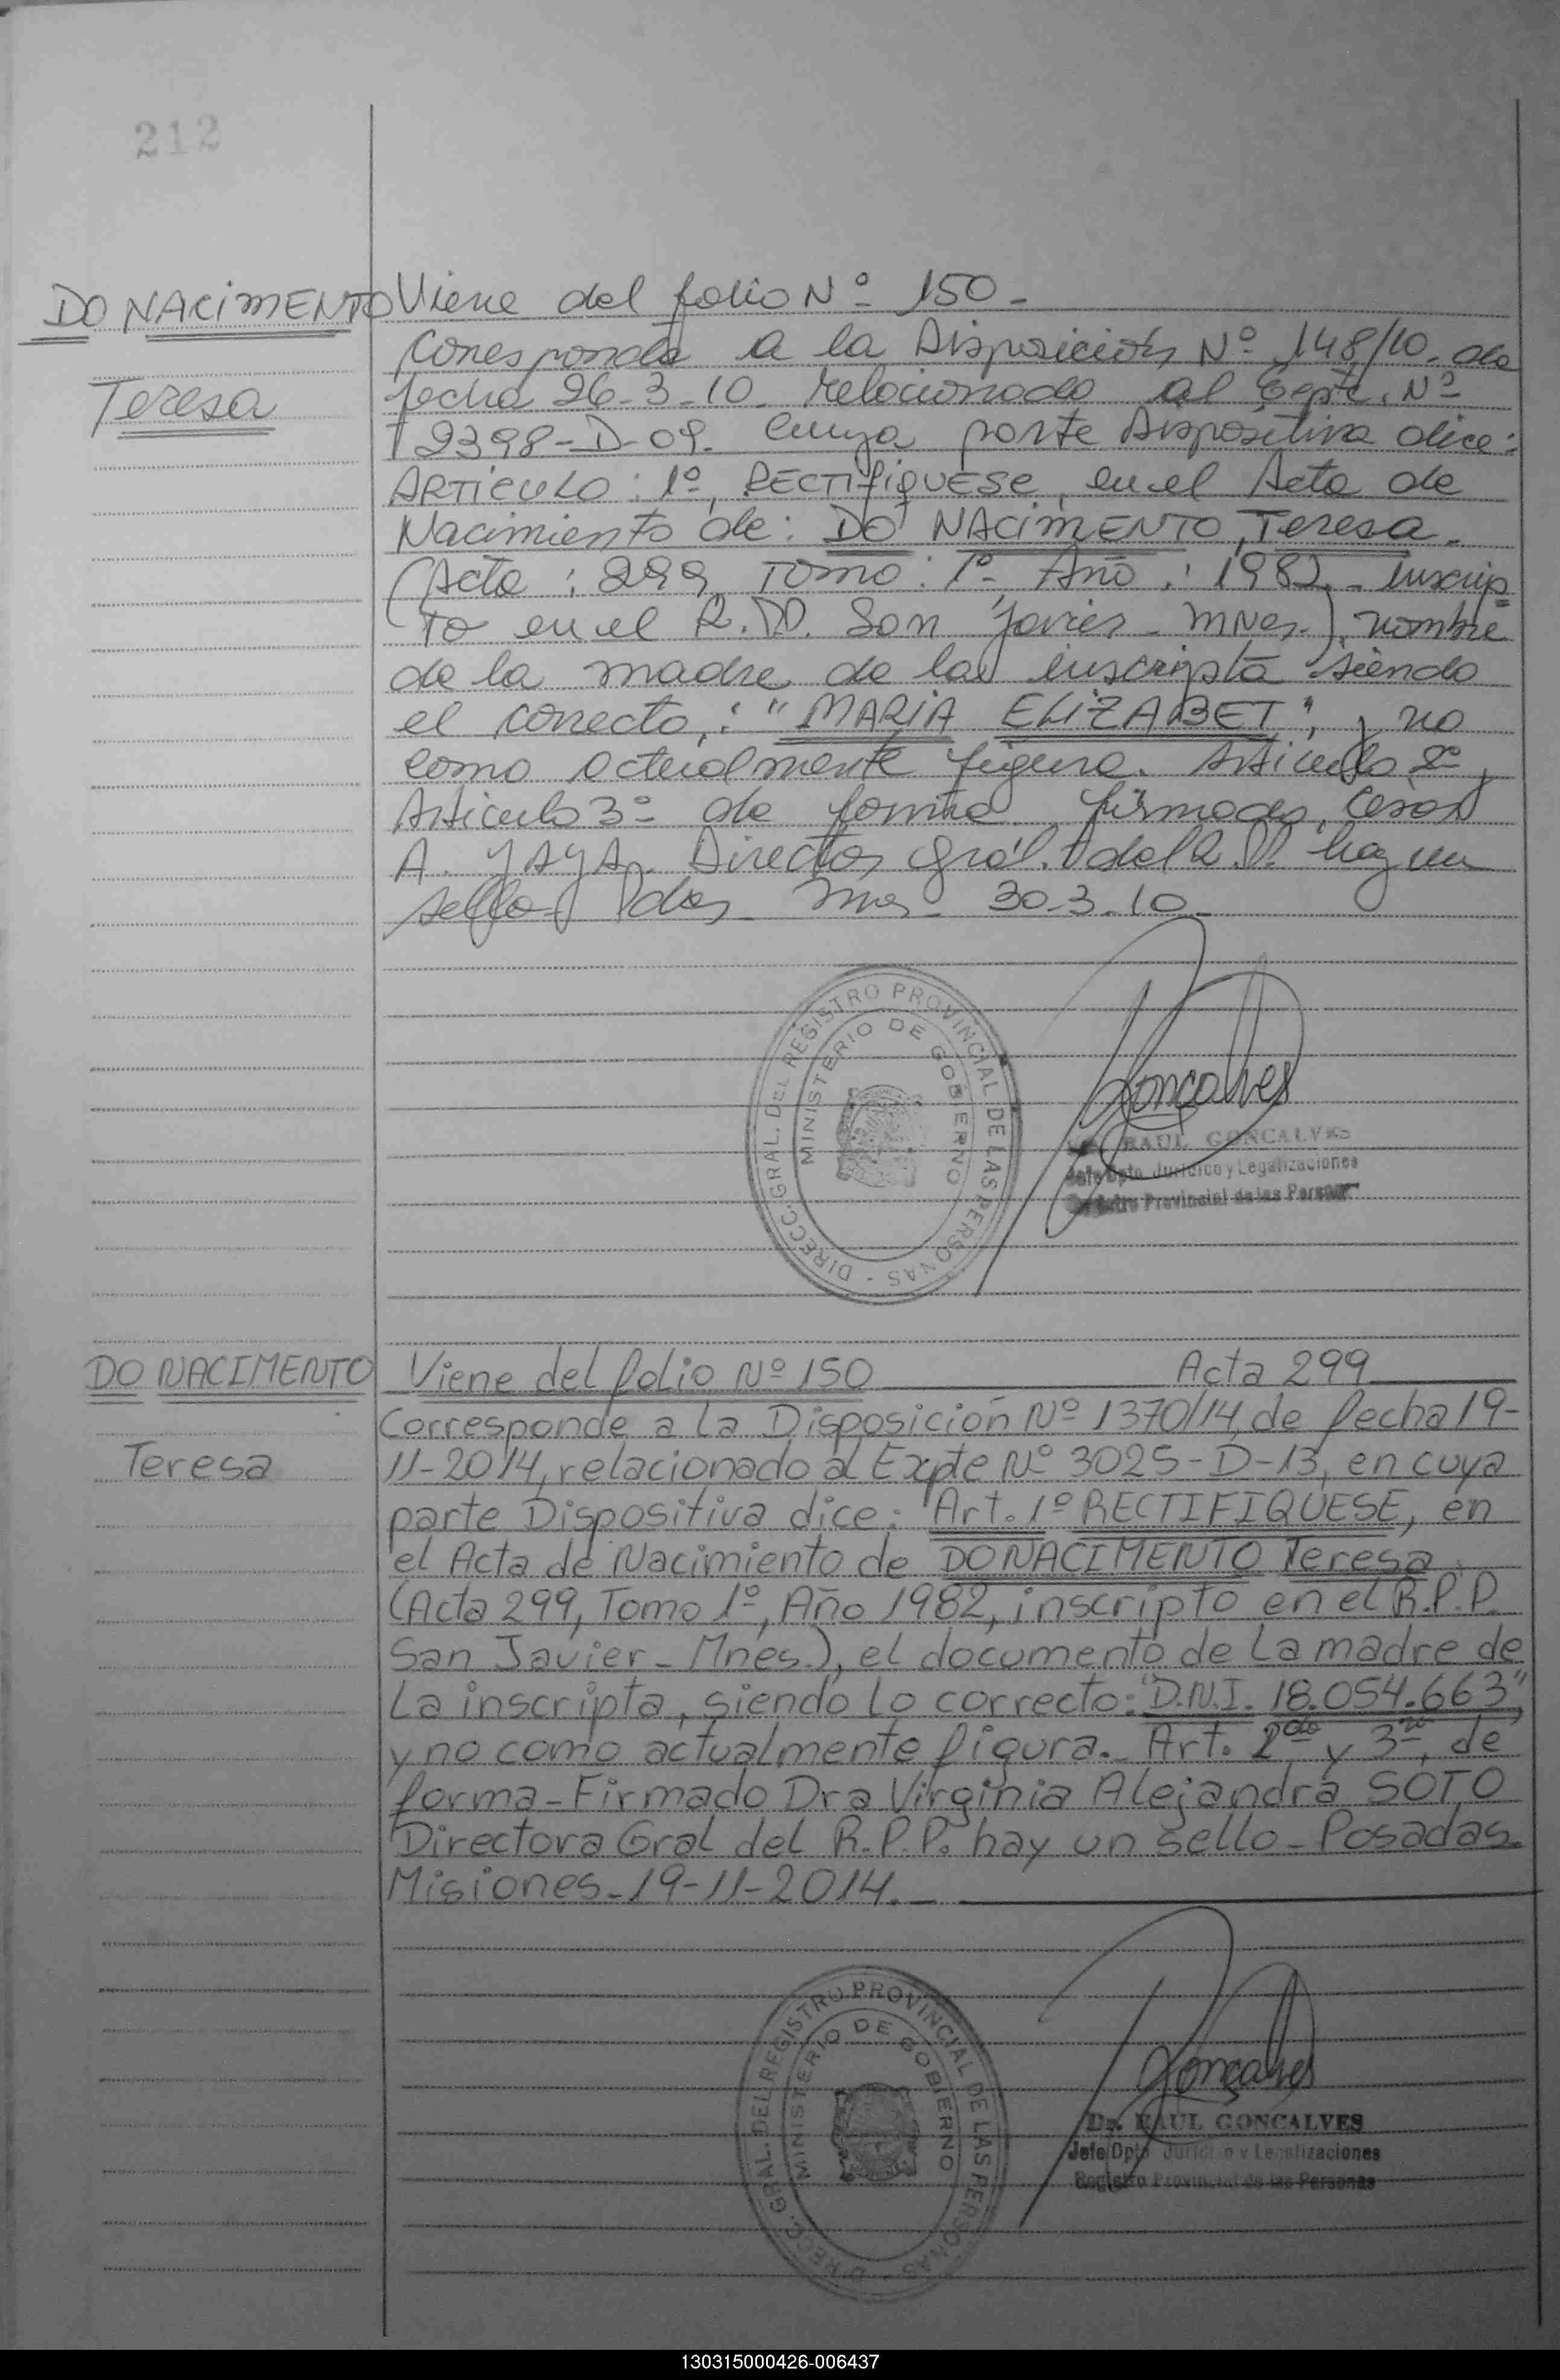 212
DO NACIMENTO Viene del folio Nº 150.-
Corresponde a la Disposición Nº 148/10. de
Teresa
fecha 26-3-10. relacionado al Expte. Nº
2398-D-09. Cuya parte Dispositiva dice:
ARTICULO: 1º, RECTIFIQUESE, en el Acta de
Nacimiento de: DO NACIMENTO, Teresa.
(Acta: 299, Tomo: 1º- Año: 1982.- inscrip
to en el R.P.P. San Javier - Mnes.-), nombre
de la madre de la inscripta siendo
el correcto,: "MARIA ELIZABET", y no
como actualmente figura. Articulo 2º,
Articulo 3º de forma. firmado, Cesar
A. YAYA. Director Gral. del R.P.P. hay un
sello - Pdas Mnes - 30-3-10.-
DIRECC. GRAL. DEL REGISTRO PROVINCIAL DE LAS PERSONAS -
MINISTERIO DE GOBIERNO
Goncalves
RAUL GONCALVES
Jefe Dpto. Jurídico y Legalizaciones
Registro Provincial de las Personas
DO NACIMENTO Viene del folio Nº 150 Acta 299
Corresponde a la Disposición Nº 1370/14, de fecha 19-
Teresa 11-2014, relacionado al Expte Nº 3025-D-13, en cuya
parte Dispositiva dice: Art. 1º RECTIFIQUESE, en
el Acta de Nacimiento de DO NACIMENTO Teresa
(Acta 299, Tomo 1º, Año 1982, inscripto en el R.P.P.
San Javier - Mnes.), el documento de La madre de
La inscripta, siendo Lo correcto: "D.N.I. 18.054.663",
y no como actualmente figura. Art. 2do y 3ro, de
forma - Firmado Dra Virginia Alejandra SOTO
Directora Gral del R.P.P. hay un sello - Posadas.
Misiones - 19-11-2014.
DIRECC. GRAL. DEL REGISTRO PROVINCIAL DE LAS PERSONAS -
MINISTERIO DE GOBIERNO
Goncalves
Dr. RAUL GONCALVES
Jefe Dpto Jurídico y Legalizaciones
Registro Provincial de las Personas
130315000426-006437